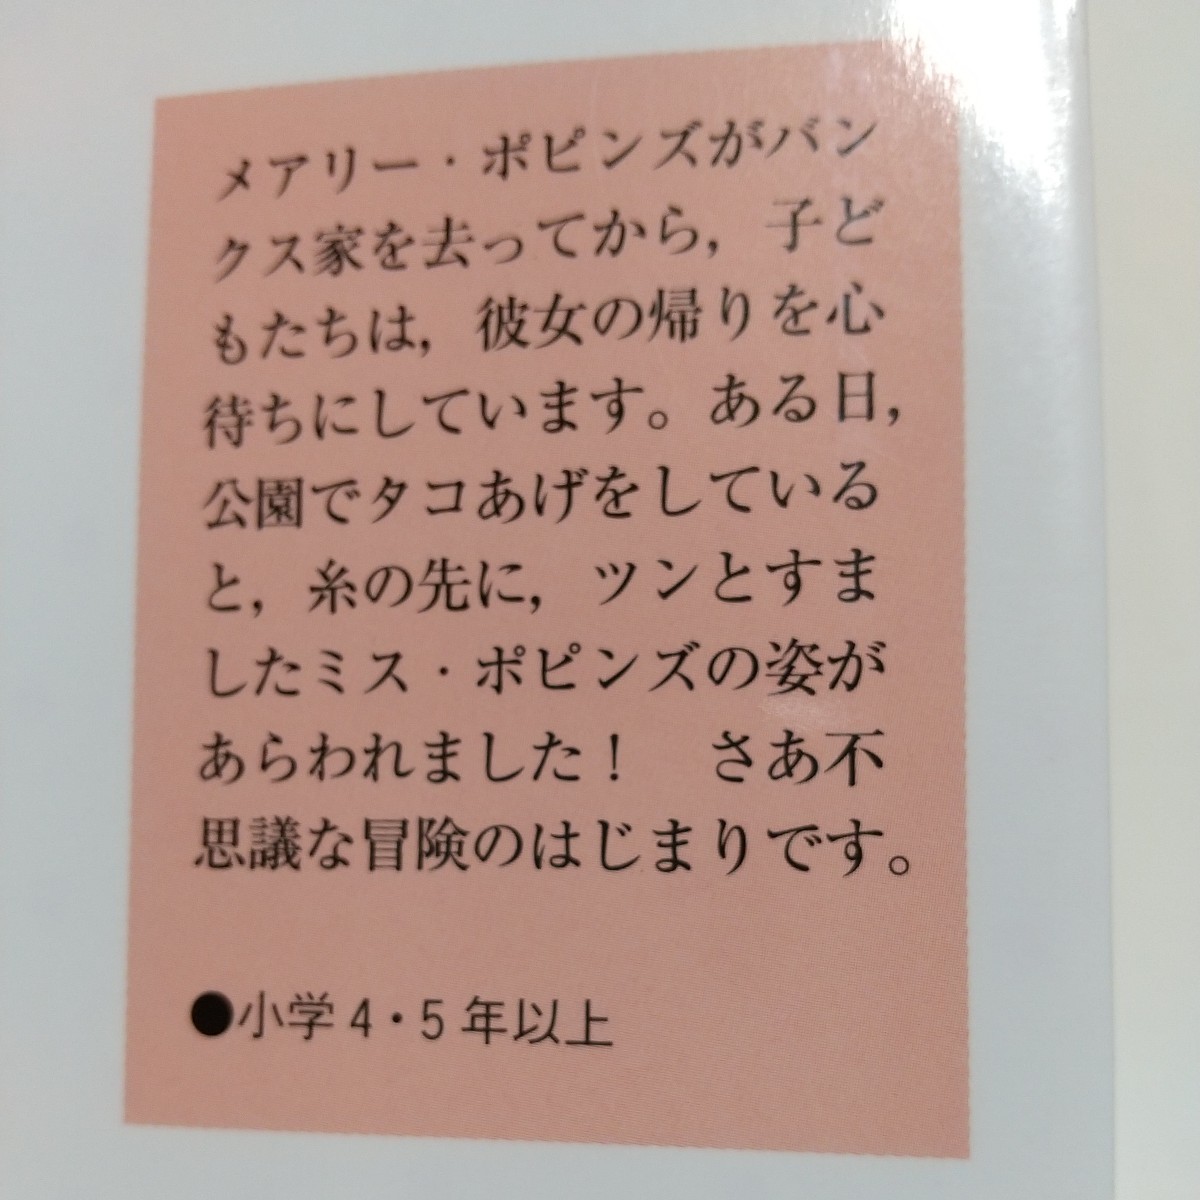 メアリー・ポピンズがバン
クス家を去ってから，子ど
もたちは，彼女の帰りを心
待ちにしています。ある日，
公園でタコあげをしている
と，糸の先に，ツンとすま
したミス・ポピンズの姿が
あらわれました！　さあ不
思議な冒険のはじまりです。
●小学4・5年以上